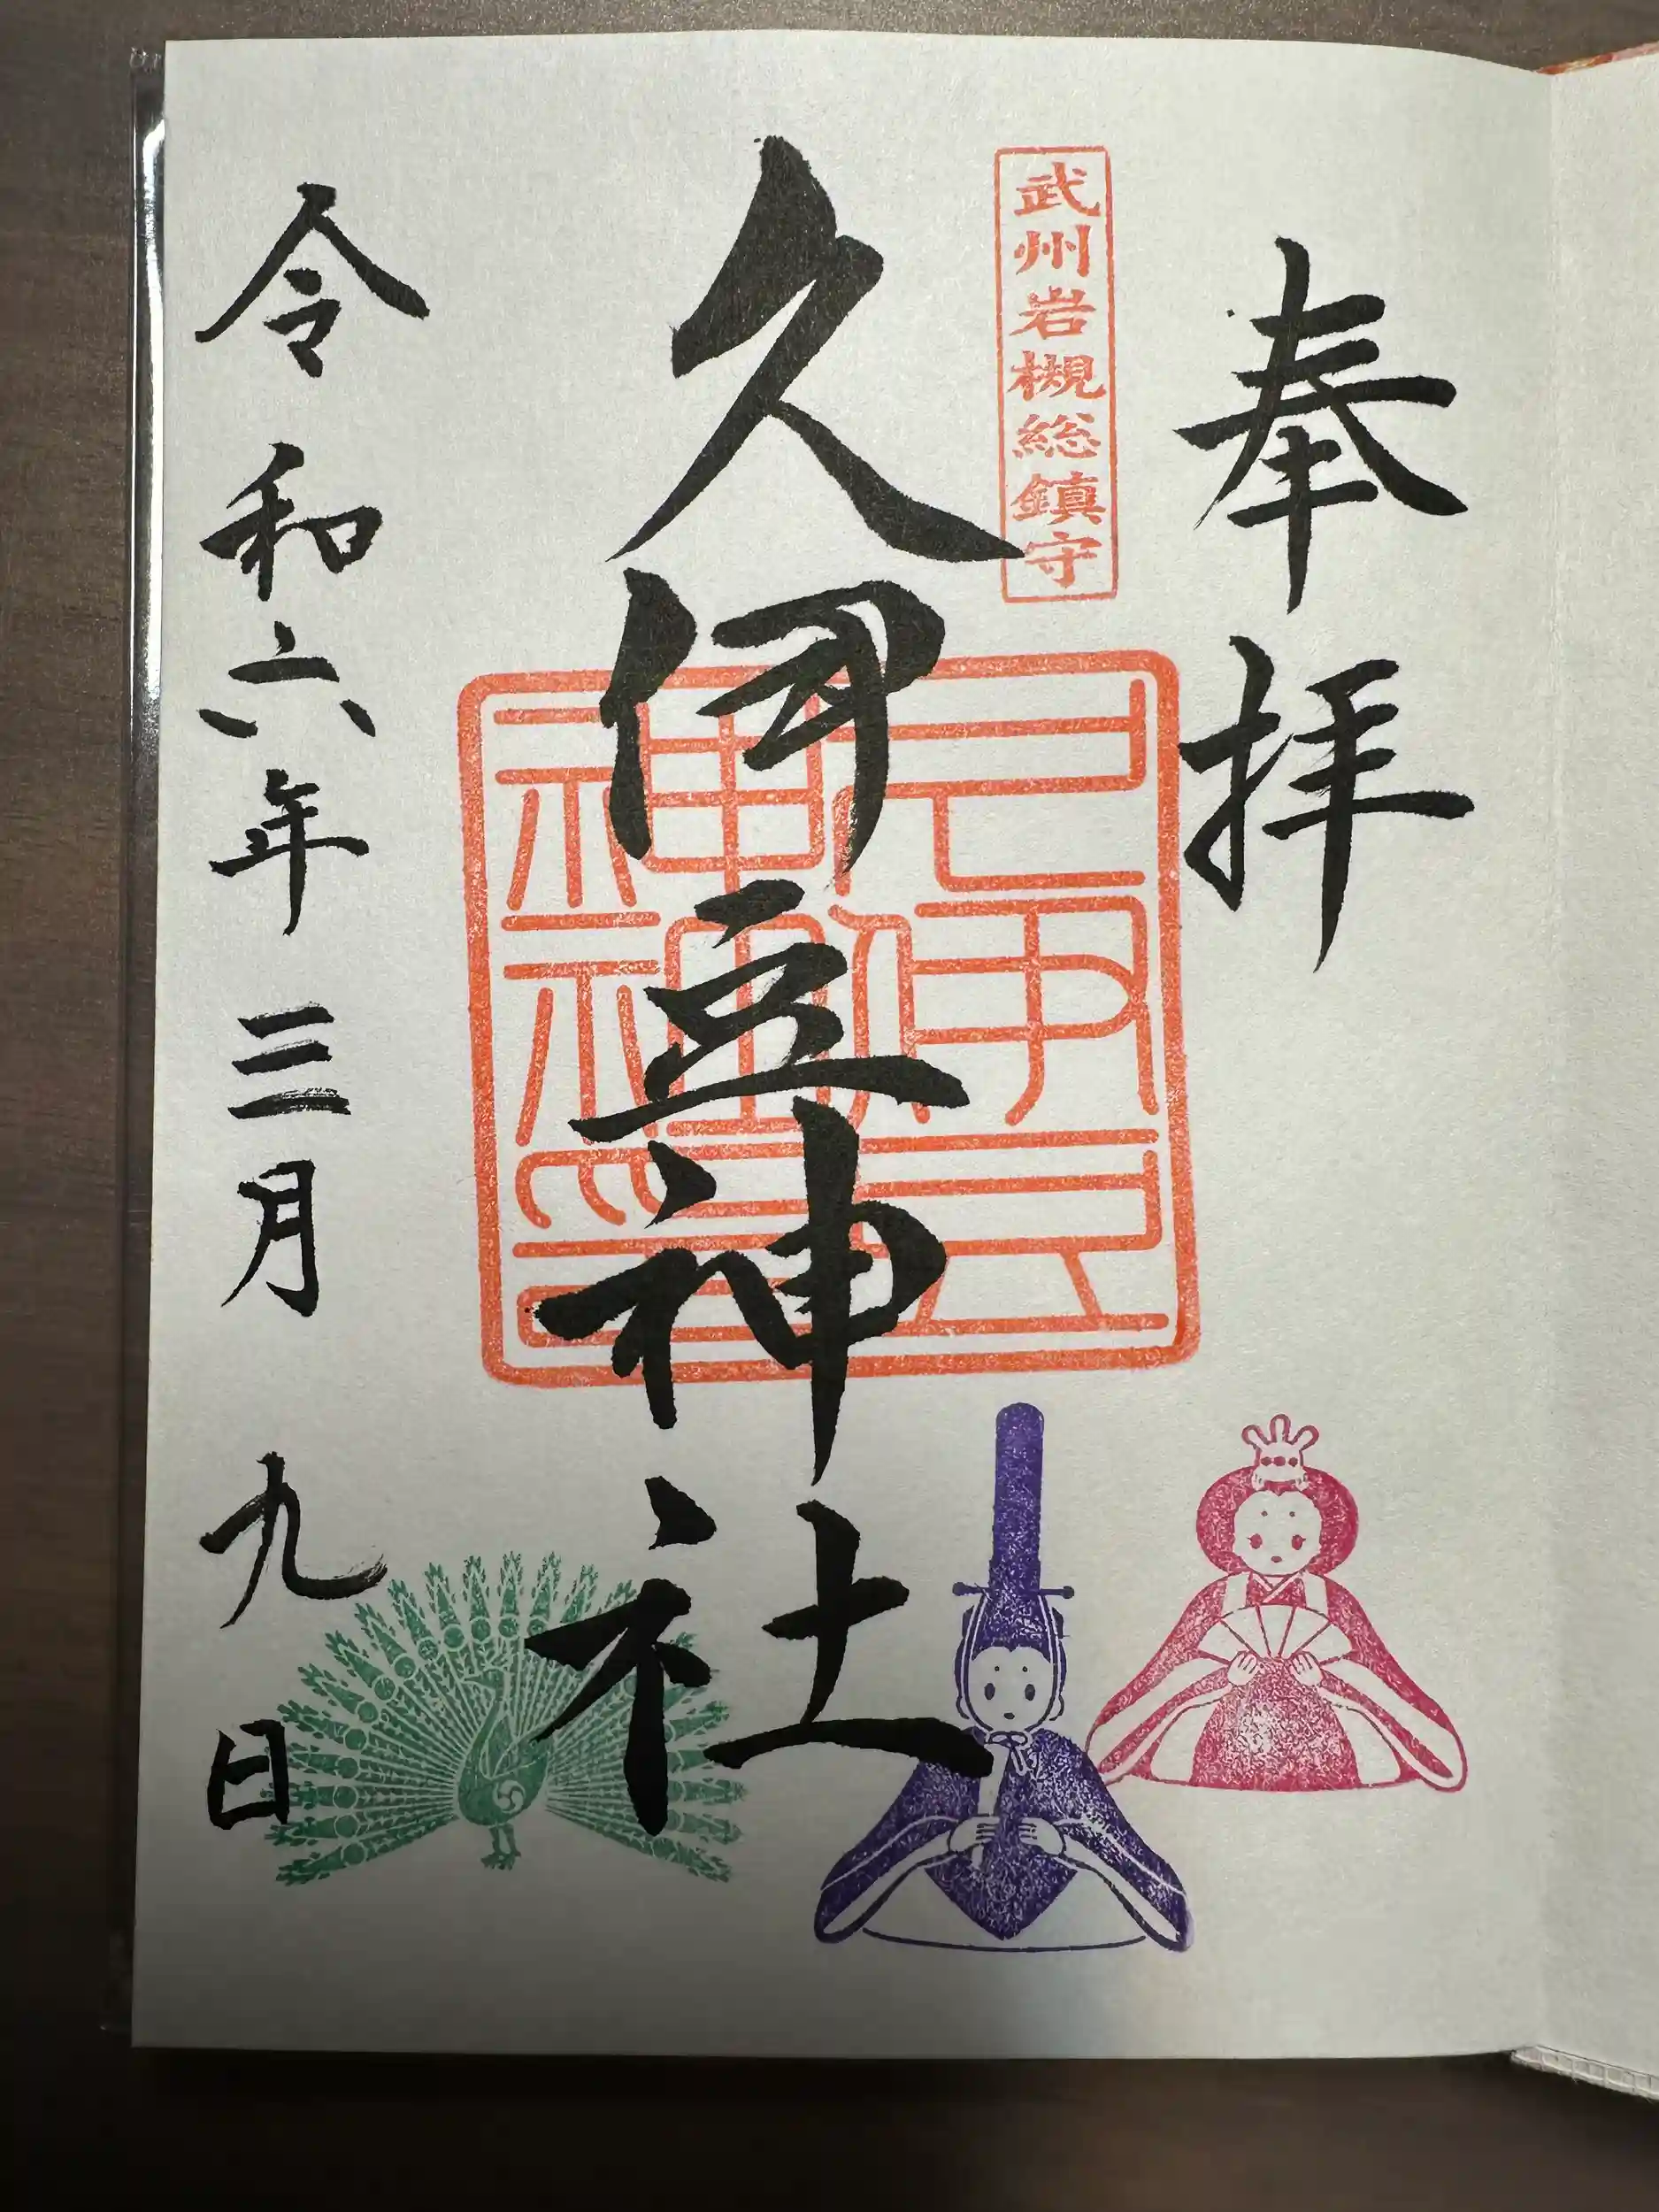 奉拝
武州岩槻総鎮守
久伊豆神社
久伊豆神社印
令和六年三月九日